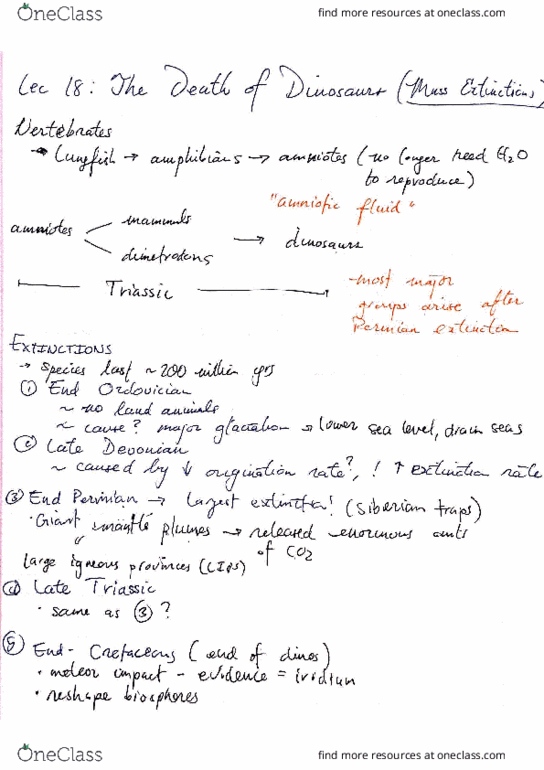 OneClass
find more resources at oneclass.com
Lec 18: The Death of Dinosaurs (Mass Extinctions)
Vertebrates
→ Lungfish → amphibians → amniotes (no longer need H2O
to reproduce)
"amniotic fluid"
amniotes
mammals
dimetrodons
→ dinosaurs
Triassic
-most major
groups arise after
Permian extinction
EXTINCTIONS
→ species last ~200 million yrs
① End Ordovician
~ no land animals
~ cause? major glaciation → lower sea level, drain seas
② Late Devonian
~ caused by ↓ origination rate?, ! ↑ extinction rate
③ End Permian → largest extinction! (Siberian traps)
• Giant mantle plumes → released enormous amts
of CO2
"
large igneous provinces (LIPs)
④ Late Triassic
• same as ③ ?
⑤ End-Cretaceous (end of dinos)
• meteor impact - evidence = iridium
• reshape biospheres
OneClass
find more resources at oneclass.com